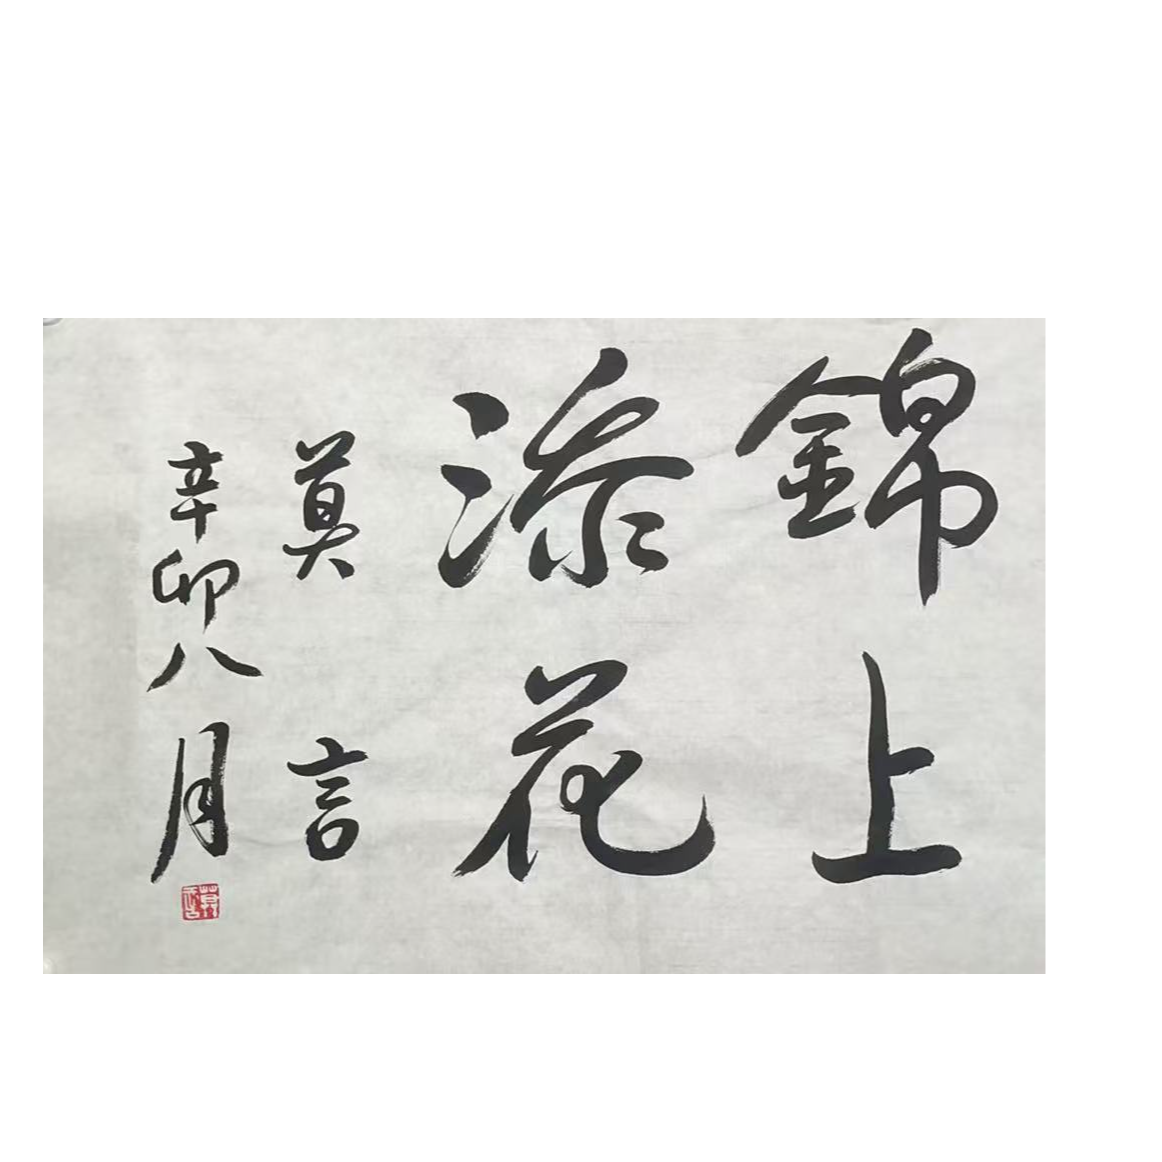 錦上
添花
莫言
辛卯八月
莫言